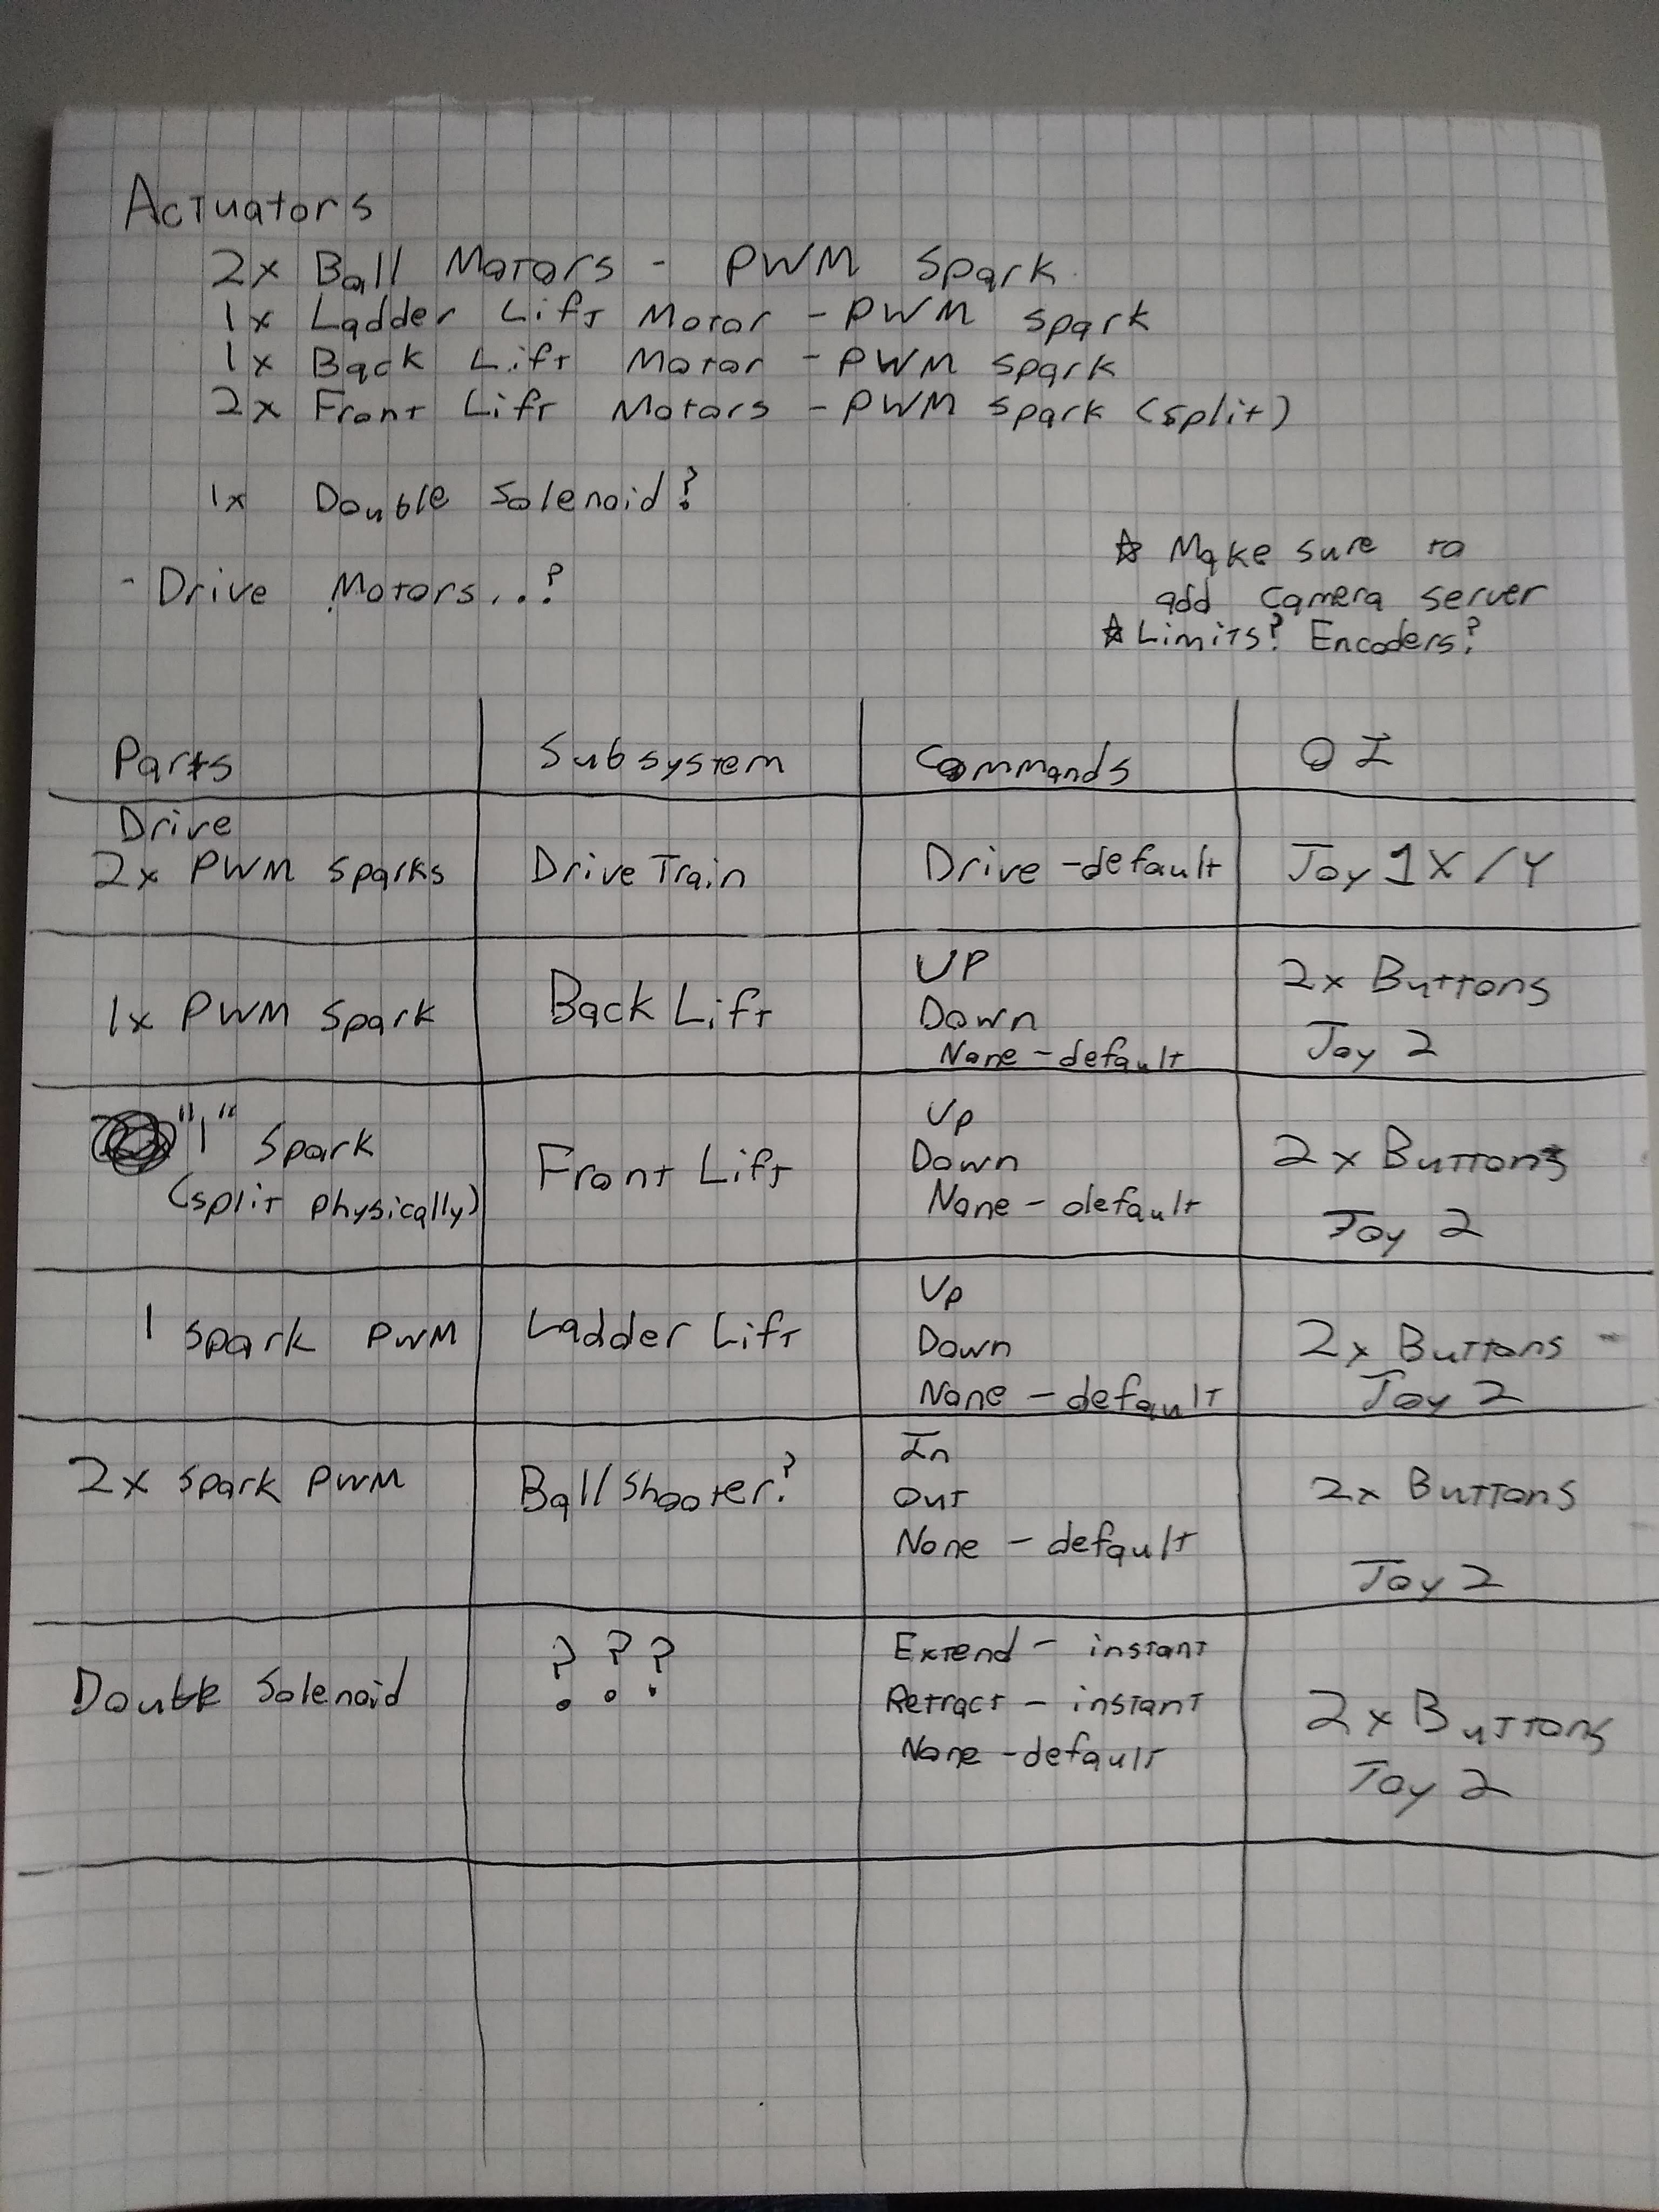 Actuators
2x Ball Motors - PWM Spark
1x Ladder Lift Motor - PWM Spark
1x Back Lift Motor - PWM Spark
2x Front Lift Motors - PWM Spark (split)
1x Double Solenoid?
- Drive Motors...?
☆ Make sure to
add camera server
☆ Limits? Encoders?
Parts Subsystem Commands OI
Drive
2x PWM Sparks Drive Train Drive - default Joy 1 X/Y
1x PWM Spark Back Lift UP
Down
None - default
2x Buttons
Joy 2
"1" Spark
(split physically)
Front Lift
Up
Down
None - default
2x Buttons
Joy 2
1 Spark PWM Ladder Lift
Up
Down
None - default
2x Buttons
Joy 2
2x Spark PWM Ball Shooter?
In
Out
None - default
2x Buttons
Joy 2
Double Solenoid
???
Extend - instant
Retract - instant
None - default
2x Buttons
Joy 2